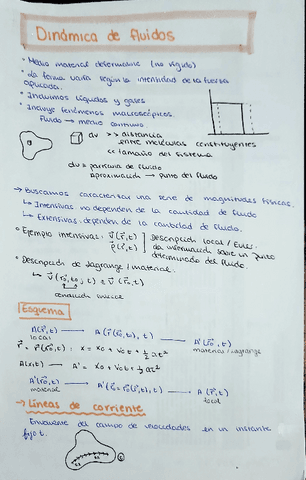 Dinámica de fluidos
• Medio material deformable (no rígido)
• La forma varía según la intensidad de la fuerza
aplicada.
• Incluimos líquidos y gases
• Incluye fenómenos macroscópicos.
Fluido → medio continuo
dv >> distancia
entre moléculas constituyentes
<< tamaño del sistema
dv = partícula de fluido
aproximación → punto del fluido
→ Buscamos caracterizar una serie de magnitudes físicas.
↳ Intensivas no dependen de la cantidad de fluido
↳ Extensivas: dependen de la cantidad de fluido.
• Ejemplo intensivas: v⃗(r⃗,t) Descripción local / Euler.
ρ(r⃗,t) da información sobre un punto
determinado del fluido.
• Descripción de Lagrange / material.
↳ v⃗(r⃗₀,t₀,t) ≡ v⃗(r⃗₀,t)
condición inicial
Esquema
A(r⃗,t) → A(r⃗(r⃗₀,t),t) → A'(r⃗₀,t)
local material/lagrange
r⃗ = r⃗(r⃗₀,t) : x = x₀ + v₀t + ½at²
A(x,t) → A' = x₀ + v₀t + ½at²
A'(r⃗₀,t) → A'(r⃗₀(r⃗,t),t) → A(r⃗,t)
material local
→ Líneas de corriente
Envolvente del campo de velocidades en un instante
fijo t.